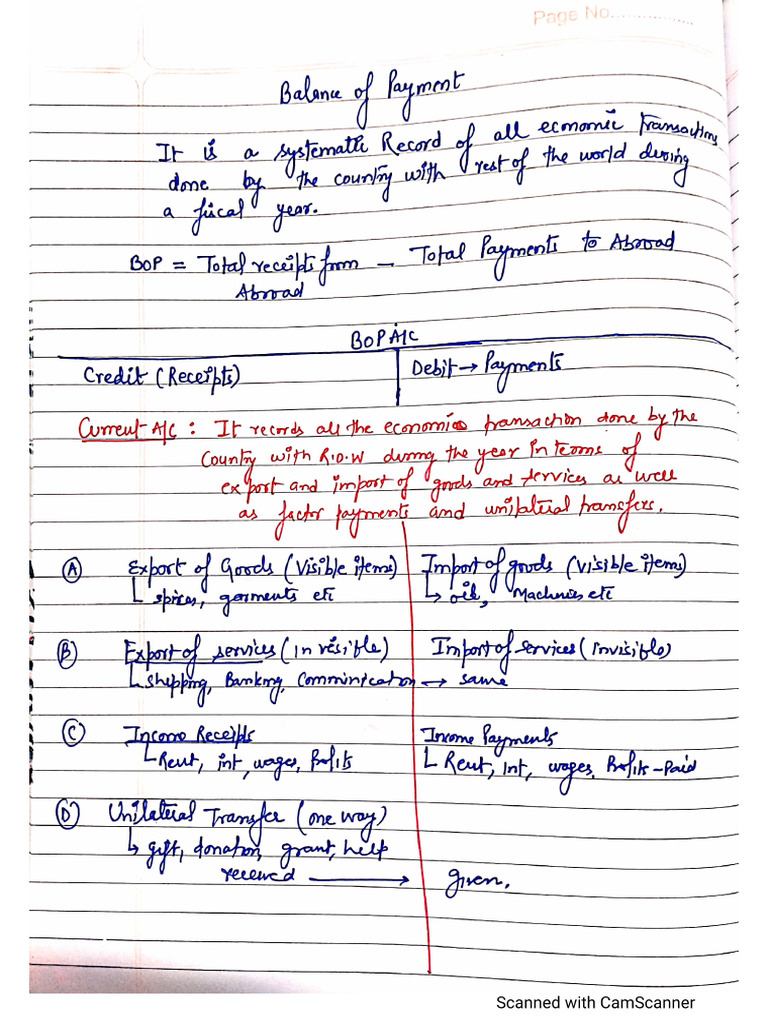 Page No...............
Balance of Payment
It is a systematic Record of all economic transactions
done by the country with rest of the world during
a fiscal year.
BOP = Total receipts from Abroad - Total Payments to Abroad
BOP A/C
Credit (Receipts) Debit → Payments
Current A/C : It records all the economic transaction done by the
Country with R.O.W during the year in terms of
export and import of goods and services as well
as factor payments and unilateral transfers.
(A) Export of Goods (Visible items) Import of goods (visible items)
↳ spices, garments etc ↳ oil, Machines etc
(B) Export of services (invisible) Import of services (invisible)
↳ Shipping, Banking, Communication → same
(C) Income Receipts Income Payments
↳ Rent, int, wages, Profits ↳ Rent, Int, wages, Profits - Paid
(D) Unilateral Transfer (one way)
↳ gift, donation, grant, help
received → given.
Scanned with CamScanner